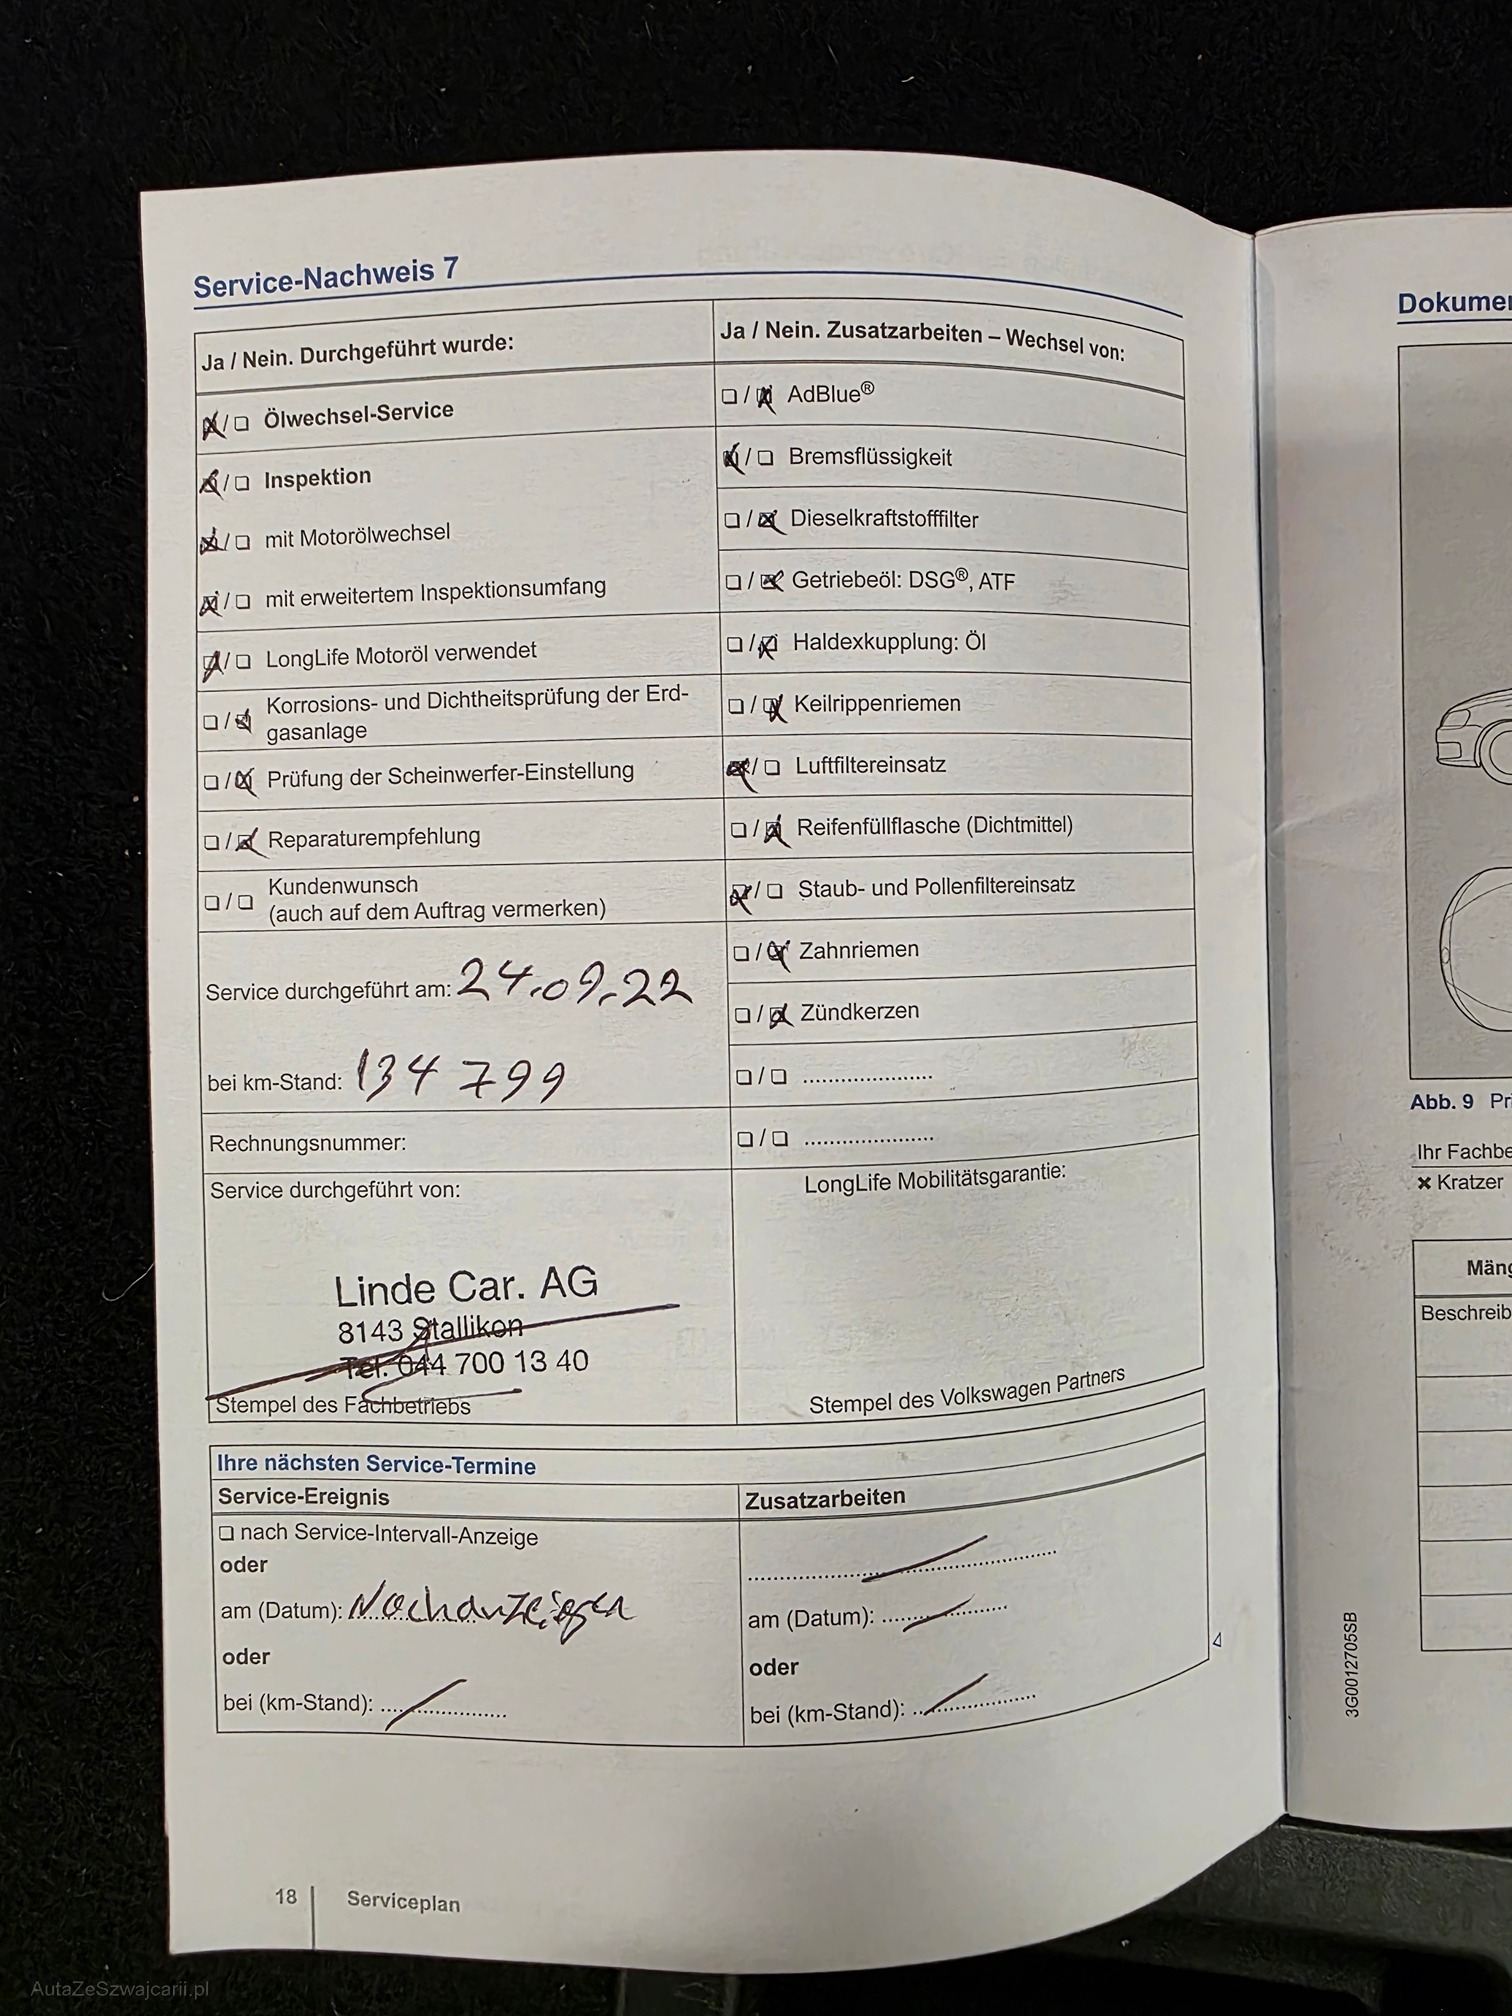 Service-Nachweis 7
Ja / Nein. Durchgeführt wurde:
☒/☐ Ölwechsel-Service
☒/☐ Inspektion
☒/☐ mit Motorölwechsel
☒/☐ mit erweitertem Inspektionsumfang
☒/☐ LongLife Motoröl verwendet
☐/☒ Korrosions- und Dichtheitsprüfung der Erd-
gasanlage
☐/☒ Prüfung der Scheinwerfer-Einstellung
☐/☒ Reparaturempfehlung
☐/☐ Kundenwunsch
(auch auf dem Auftrag vermerken)
Service durchgeführt am: 24.09.22
bei km-Stand: 134 799
Rechnungsnummer:
Service durchgeführt von:
Linde Car. AG
8143 Stallikon
Tel. 044 700 13 40
Stempel des Fachbetriebs
Ja / Nein. Zusatzarbeiten – Wechsel von:
☐/☒ AdBlue®
☒/☐ Bremsflüssigkeit
☐/☒ Dieselkraftstofffilter
☐/☒ Getriebeöl: DSG®, ATF
☐/☒ Haldexkupplung: Öl
☐/☒ Keilrippenriemen
☒/☐ Luftfiltereinsatz
☐/☒ Reifenfüllflasche (Dichtmittel)
☒/☐ Staub- und Pollenfiltereinsatz
☐/☒ Zahnriemen
☐/☒ Zündkerzen
☐/☐ ......................
☐/☐ ......................
LongLife Mobilitätsgarantie:
Stempel des Volkswagen Partners
Ihre nächsten Service-Termine
Service-Ereignis
☐ nach Service-Intervall-Anzeige
oder
am (Datum): Nachanzeigen
oder
bei (km-Stand): ......................
Zusatzarbeiten
......................
am (Datum): ......................
oder
bei (km-Stand): ......................
18 Serviceplan
Dokumen
Abb. 9
Ihr Fachbe
✖ Kratzer
Mäng
Beschreib
3G0012705SB
AutaZeSzwajcarii.pl